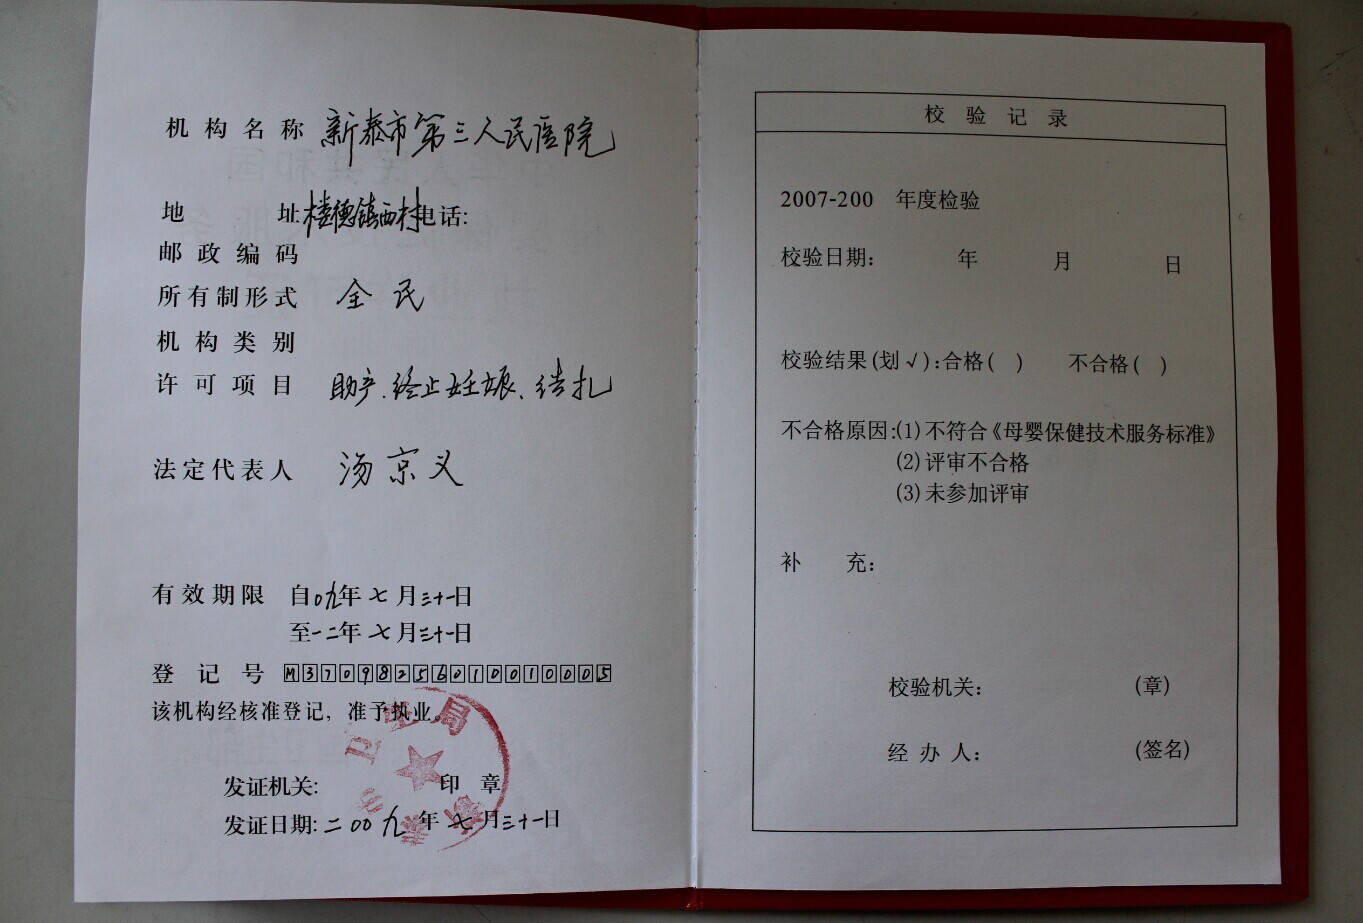 机构名称 新泰市第三人民医院
地 址 楼德镇西村 电话:
邮政编码
所有制形式 全民
机构类别
许可项目 助产、终止妊娠、结扎
法定代表人 汤京义
有效期限 自0九年七月三十一日
至一二年七月三十一日
登记号 M370982560100010005
该机构经核准登记，准予执业。
卫生局
发证机关: 印章
发证日期:二00九年七月三十一日
校验记录
2007-200 年度检验
校验日期: 年 月 日
校验结果(划√):合格( ) 不合格( )
不合格原因:(1)不符合《母婴保健技术服务标准》
(2)评审不合格
(3)未参加评审
补 充:
校验机关: (章)
经办人: (签名)